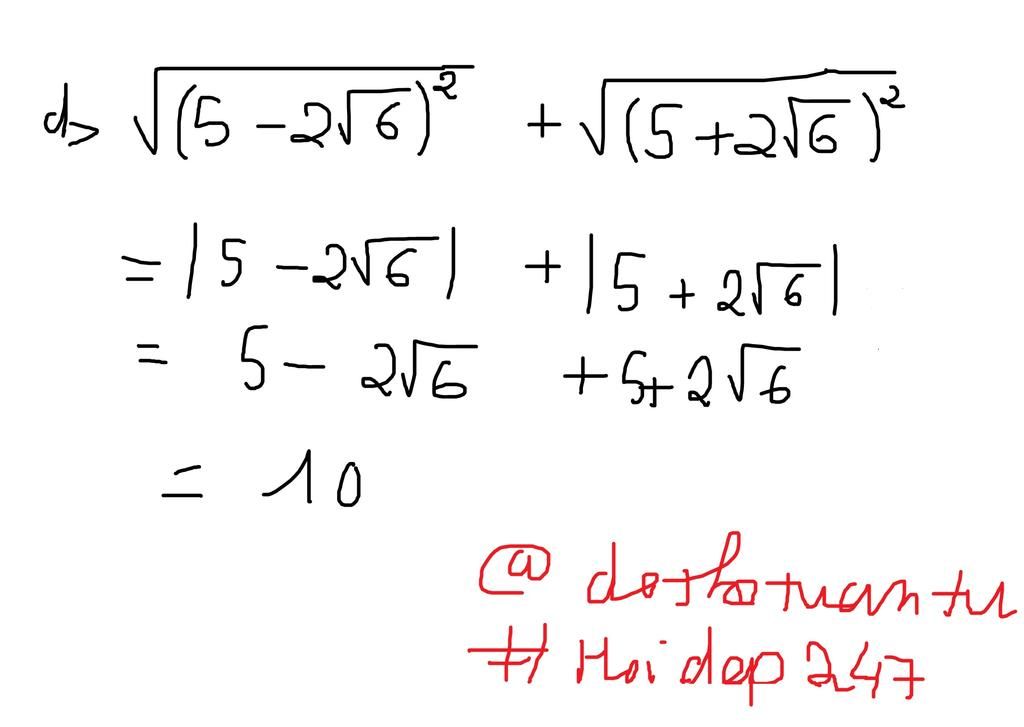 d> √(5 - 2√6)² + √(5 + 2√6)²
= |5 - 2√6| + |5 + 2√6|
= 5 - 2√6 + 5 + 2√6
= 10
@ dothotuantu
# Hoidap247